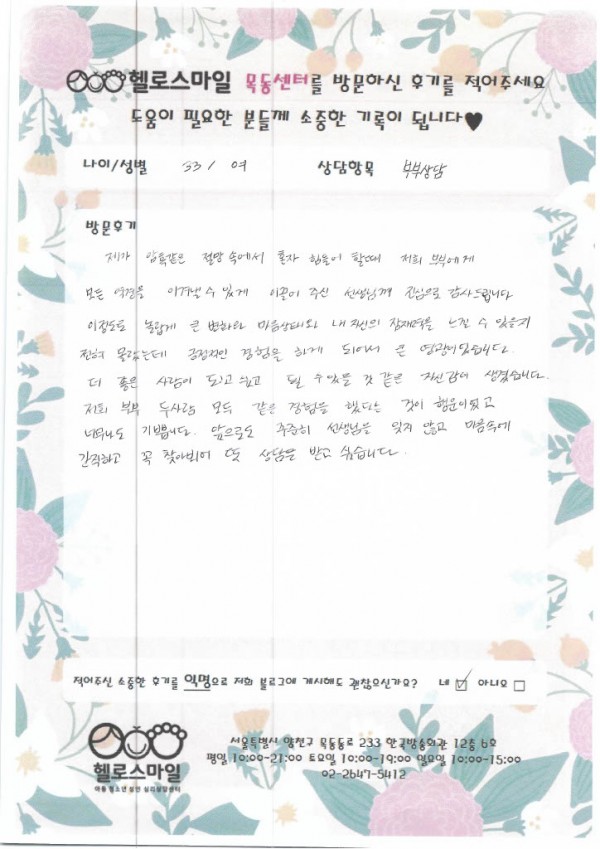 헬로스마일 목동센터를 방문하신 후기를 적어주세요
도움이 필요한 분들께 소중한 기록이 됩니다♥
나이/성별 33 / 여 상담항목 부부상담
방문후기
제가 암흑같은 절망 속에서 혼자 힘들어 할때 저희 부부에게
모든 역경을 이겨낼 수 있게 이끌어 주신 선생님께 진심으로 감사드립니다
이정도로 놀랍게 큰 변화와 마음상태와 내 자신의 잠재력을 느낄 수 있을지
전혀 몰랐는데 긍정적인 경험을 하게 되어서 큰 영광이었습니다.
더 좋은 사람이 되고 싶고 될 수 있을 것 같은 자신감이 생겼습니다.
저희 부부 두사람 모두 같은 경험을 했다는 것이 행운이었고
너무나도 기쁩니다. 앞으로도 주중히 선생님을 잊지 않고 마음속에
간직하고 꼭 찾아뵈어 또 상담을 받고 싶습니다.
적어주신 소중한 후기를 익명으로 저희 블로그에 게시해도 괜찮으신가요? 네 ☑ 아니요 □
헬로스마일
아동 청소년 성인 심리상담센터
서울특별시 양천구 목동동로 233 한국방송회관 12층 6호
평일 10:00-21:00 토요일 10:00-19:00 일요일 10:00-15:00
02-2647-5412